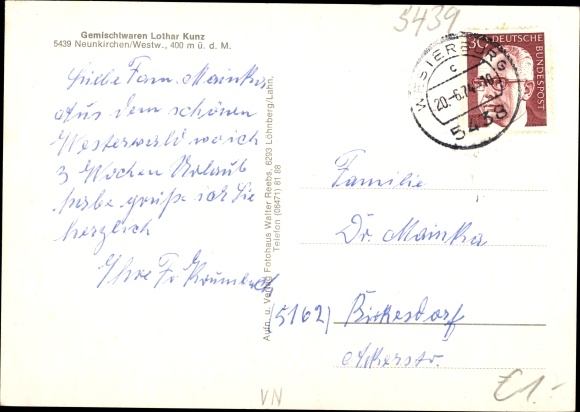 5439
Gemischtwaren Lothar Kunz
5439 Neunkirchen/Westw., 400 m ü. d. M.
Liebe Fam. Mainka,
Aus dem schönen
Westerwald wo ich
3 Wochen Urlaub
habe grüße ich Sie
herzlich
Ihre Fr. Krumbach
Aufn. u. Verlag Fotohaus Walter Reebs, 6293 Löhnberg/Lahn,
Telefon (06471) 81 88
30 DEUTSCHE
BUNDESPOST
WESTERBURG
c
20.-6.74-10
5438
Familie
Dr. Mainka
5162) Birkesdorf
Ackerstr.
VN
€1.-